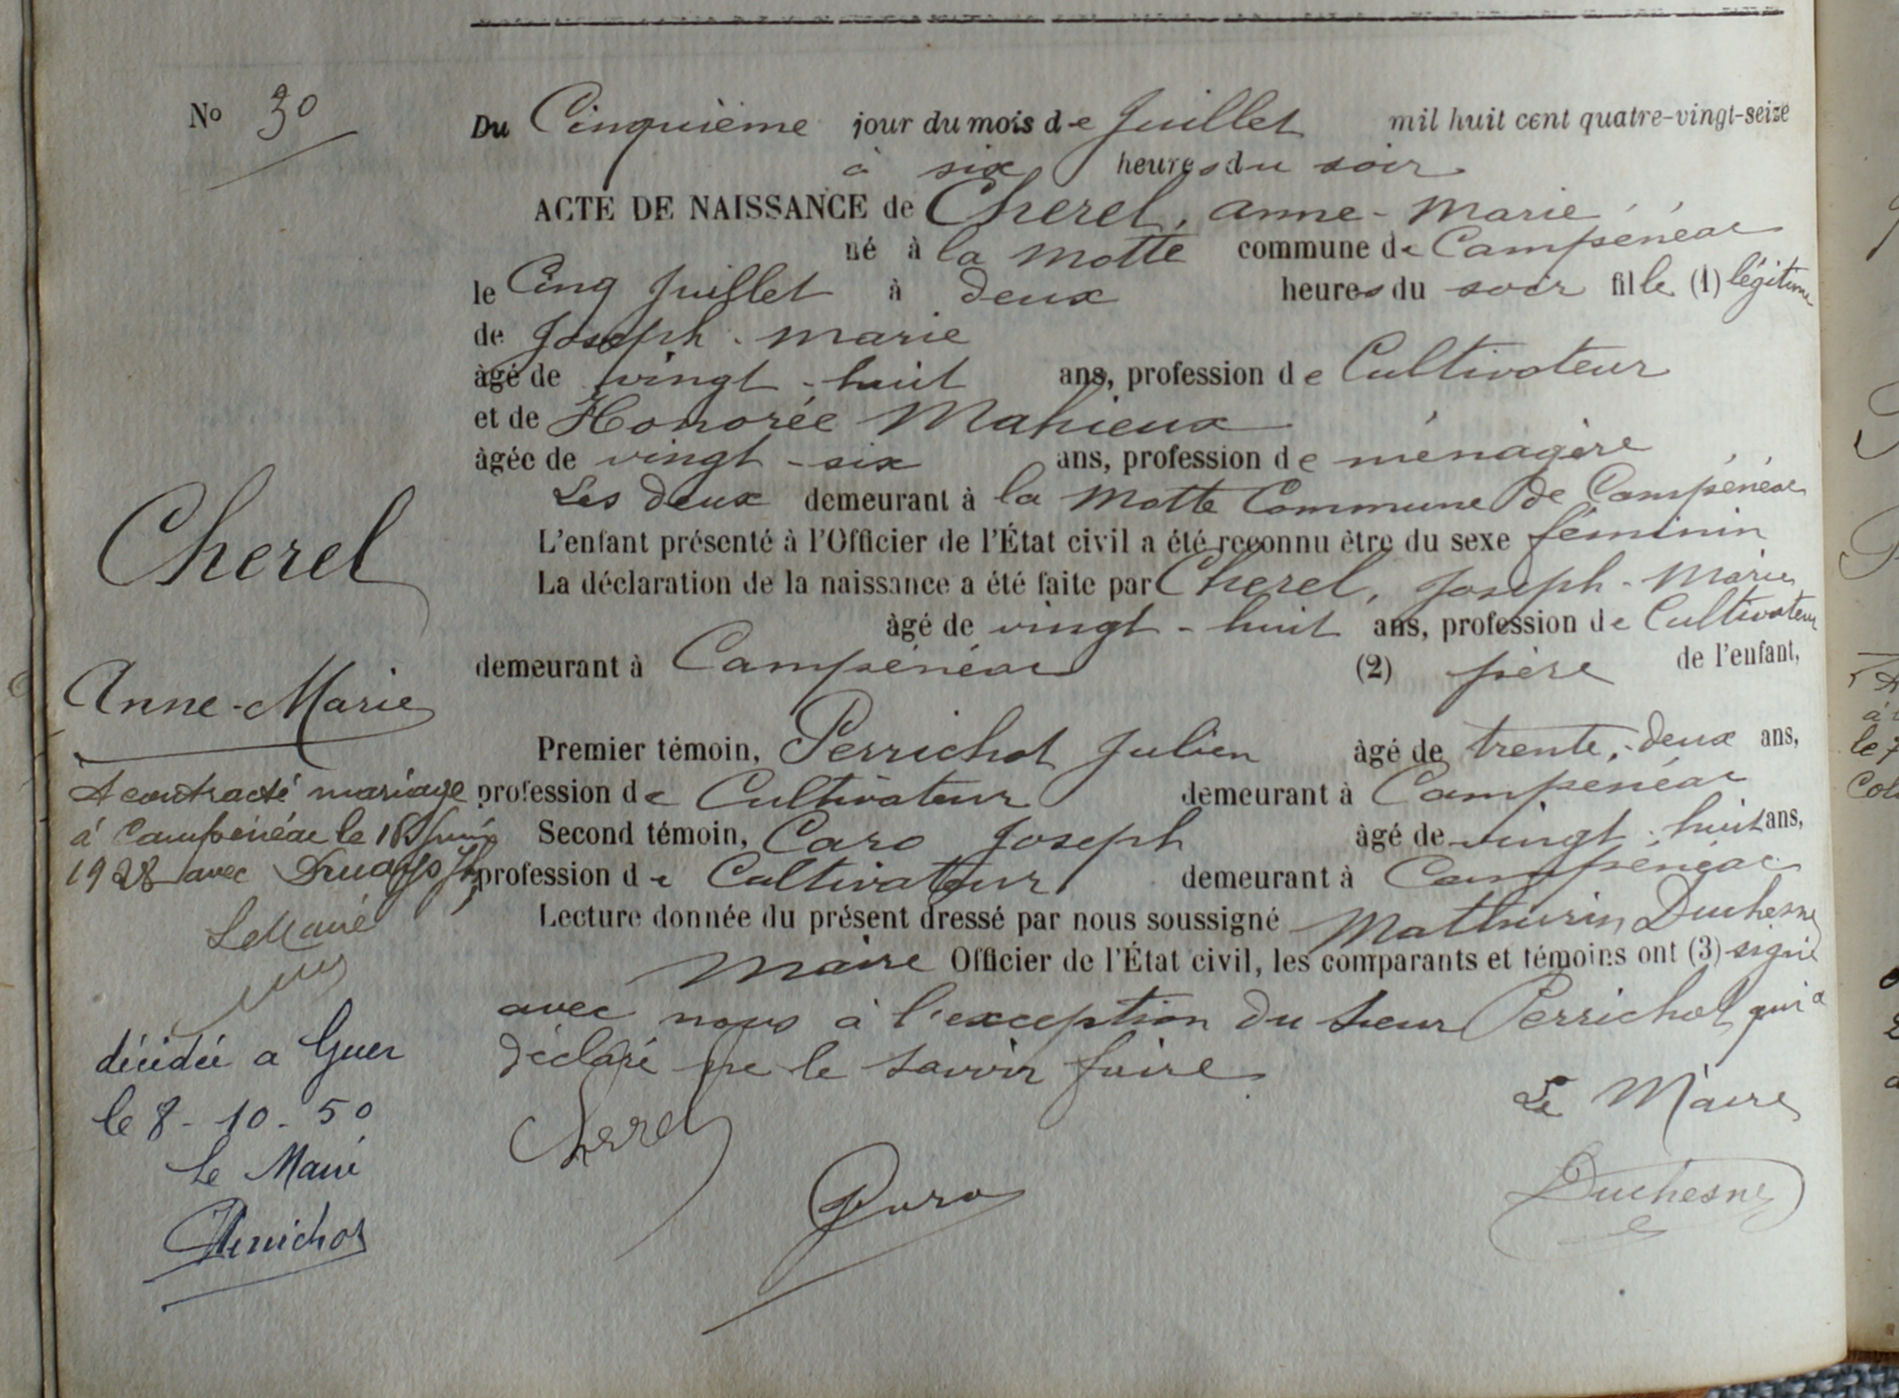 No 30
Du Cinquième jour du mois de Juillet mil huit cent quatre-vingt-seize
à six heures du soir
ACTE DE NAISSANCE de Cherel, Anne-Marie
né à la Motte commune de Campénéac
le Cinq Juillet à deux heures du soir fille (1) légitime
de Joseph-Marie
âgé de vingt-huit ans, profession de Cultivateur
et de Honorée Mahieux
âgée de vingt-six ans, profession de ménagère
Les deux demeurant à la Motte Commune de Campénéac
L'enfant présenté à l'Officier de l'État civil a été reconnu être du sexe féminin
La déclaration de la naissance a été faite par Cherel, Joseph-Marie
âgé de vingt-huit ans, profession de Cultivateur
demeurant à Campénéac (2) père de l'enfant,
Premier témoin, Perrichot Julien âgé de trente-deux ans,
profession de Cultivateur demeurant à Campénéac
Second témoin, Caro Joseph âgé de vingt-huit ans,
profession de Cultivateur demeurant à Campénéac
Lecture donnée du présent dressé par nous soussigné Mathurin Duchesne
Maire Officier de l'État civil, les comparants et témoins ont (3) signé
avec nous à l'exception du sieur Perrichot qui a
déclaré ne le savoir faire
Le Maire
Cherel
Caro
Duchesne
Cherel
Anne-Marie
A contracté mariage
à Campénéac le
1928 avec
Le Maire
décédée a Guer
le 8-10-50
le Maire
Perrichot